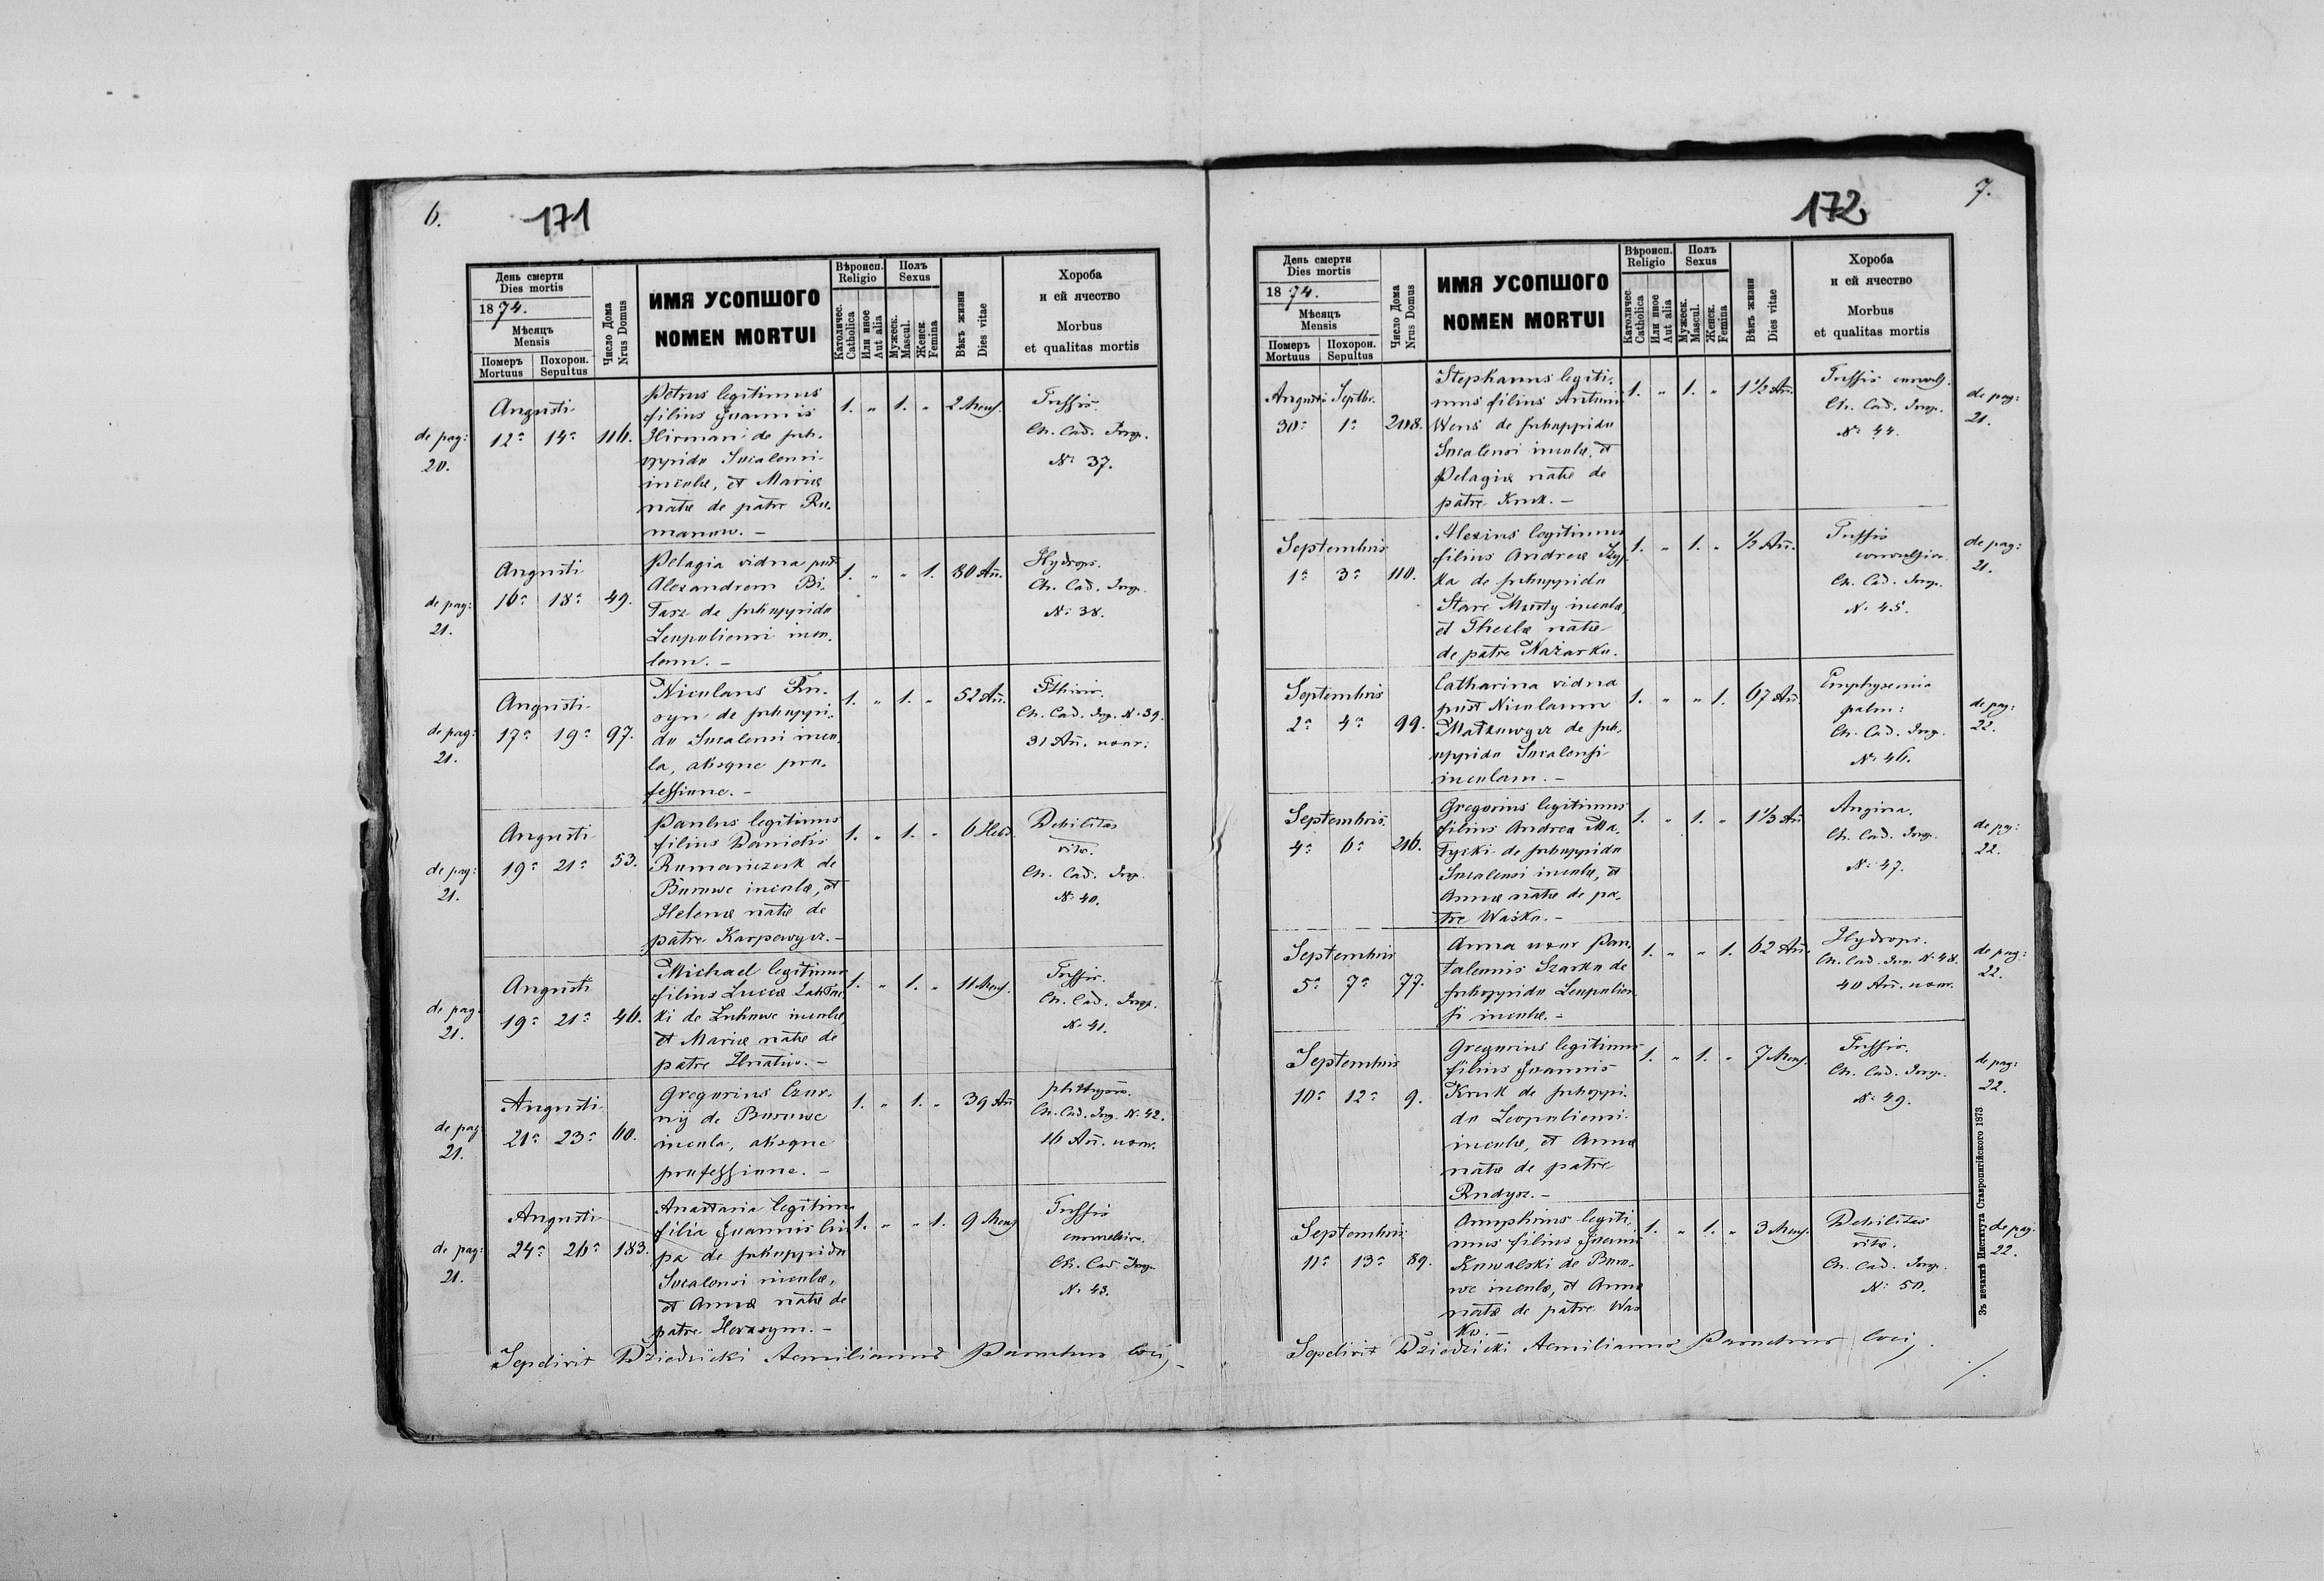 6.
171
День смерти
Dies mortis
1874.
Мѣсяцъ
Mensis
Померъ
Mortuus
Похорон.
Sepultus
Число Дома
Nrus Domus
ИМЯ УСОПШОГО
NOMEN MORTUI
Вѣроисп.
Religio
Католичес.
Catholica
Или иное
Aut alia
Полъ
Sexus
Мужеск.
Mascul.
Женск.
Femina
Вѣкъ жизни
Dies vitae
Хороба
и ей ячество
Morbus
et qualitas mortis
de pag: 20.
Augusti
12a 14a 116.
Petrus legitimus
filius Joannis
Hirman de sub-
oppido Socalensi
incolæ, et Mariæ
natæ de patre Ro-
manow. –
1. " 1. " 2 Mens.
Tussis.
Ch. Cad. Insp.
No 37.
de pag: 21.
Augusti
16a 18a 49.
Pelagia vidua post
Alexandrum Bi-
tarz de suboppido
Leopoliensi inco-
lam. –
1. " " 1. 80 Añ.
Hydrops.
Ch. Cad. Insp.
No 38.
de pag: 21.
Augusti
17a 19a 97.
Nicolaus
de suboppi-
do Socalensi inco-
la, absque pro-
fessione. –
1. " 1. " 52 Añ.
Ch. Cad. Insp. No 39.
31 Añ. uxor:
de pag: 21.
Augusti
19a 21a 53.
Paulus legitimus
filius Danielis
Romaniczuk de
Borowe incolæ, et
Helenæ natæ de
patre Karpowycz. –
1. " 1. " 6 Hebd.
Debilitas
vitæ.
Ch. Cad. Insp.
No 40.
de pag: 21.
Augusti
19a 21a 46.
Michael legitimus
filius Lucæ
de incolæ,
et Mariæ natæ de
patre Hnatiw. –
1. " 1. " 11 Mens.
Tussis.
Ch. Cad. Insp.
No 41.
de pag: 21.
Augusti
21a 23a 60.
Gregorius Czor-
nij de Borowe
incola, absque
professione. –
1. " 1. " 39 Añ
Ch. Cad. Insp. No 42.
16 Añ. uxor.
de pag: 21.
Augusti
24a 26a 183.
Anastasia legitima
filia Joannis Ciu-
pa de suboppido
Socalensi incolæ,
et Annæ natæ de
patre Herasym. –
1. " " 1. 9 Mens
Tussis
convulsiva.
Ch. Cad. Insp.
No 43.
Sepelivit Dziedzicki Aemilianus Parochus loci
7.
172
День смерти
Dies mortis
1874.
Мѣсяцъ
Mensis
Померъ
Mortuus
Похорон.
Sepultus
Число Дома
Nrus Domus
ИМЯ УСОПШОГО
NOMEN MORTUI
Вѣроисп.
Religio
Католичес.
Catholica
Или иное
Aut alia
Полъ
Sexus
Мужеск.
Mascul.
Женск.
Femina
Вѣкъ жизни
Dies vitae
Хороба
и ей ячество
Morbus
et qualitas mortis
Augusti Septbr.
30a 1a 208.
Stephanus legiti-
mus filius Antonii
Wons de suboppido
Socalensi incolæ, et
Pelagiæ natæ de
patre Kruk. –
1. " 1. " 1 1/2 Añ.
Tussis convuls.
Ch. Cad. Insp.
No 44.
de pag: 21.
Septembris
1a 3a 110.
Alexius legitimus
filius Andreæ
de suboppido
Stare Mosty incolæ,
et Theclæ natæ
de patre Nazarko.
1. " 1. " 1/2 Añ.
Tussis
convulsiva
Ch. Cad. Insp.
No 45.
de pag: 21.
Septembris
2a 4a 99.
Catharina vidua
post Nicolaum
Matkowycz de sub-
oppido Socalensi
incolam. –
1. " " 1. 67 Añ.
Emphysemia
pulm:
Ch. Cad. Insp.
No 46.
de pag: 22.
Septembris
4a 6a 216.
Gregorius legitimus
filius Andreæ Ma-
tycki de suboppido
Socalensi incolæ, et
Annæ natæ de pa-
tre Wasko. –
1. " 1. " 1 1/3 Añ
Angina.
Ch. Cad. Insp.
No 47.
de pag: 22.
Septembris
5a 7a 77.
Anna uxor Pan-
taleonis Szarko de
suboppido Leopolien-
si incolæ. –
1. " " 1. 62 Añ.
Hydrops.
Ch. Cad. Insp. No 48.
40 Añ. uxor.
de pag: 22.
Septembris
10a 12a 9.
Gregorius legitimus
filius Joannis
Kruk de suboppi-
do Leopoliensi
incolæ, et Annæ
natæ de patre
Rudysz. –
1. " 1. " 7 Mens.
Tussis.
Ch. Cad. Insp.
No 49.
de pag: 22.
Septembris
11a 13a 89.
Onuphrius legiti-
mus filius Joannis
Kowalski de Boro-
we incolæ, et Annæ
natæ de patre Was-
ko. –
1. " 1. " 3 Mens.
Debilitas
vitæ.
Ch. Cad. Insp.
No 50.
de pag: 22.
Sepelivit Dziedzicki Aemilianus Parochus loci
Зъ печатнѣ Института Ставропигійского 1873